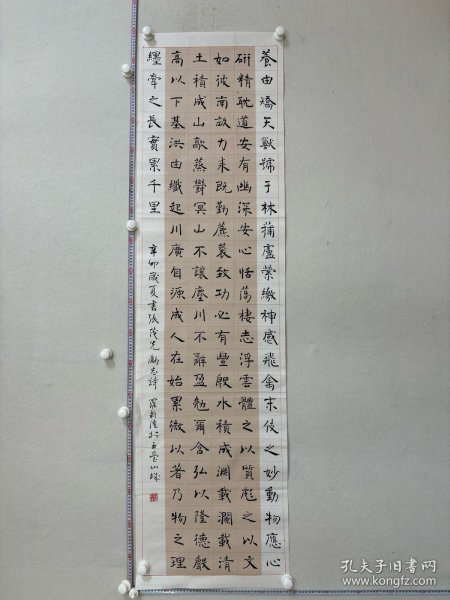 養由矯矢獸號于林蒲盧縈繳神感飛禽末伎之妙動物應心
研精耽道安有幽深安心恬蕩棲志浮雲體之以質彪之以文
如彼南畝力耒既勤藨蓘致功必有豐殷水積成淵載瀾載清
土積成山歊蒸鬱冥山不讓塵川不辭盈勉爾含弘以隆德聲
高以下基洪由纖起川廣自源成人在始累微以著乃物之理
纆牽之長實累千里
辛卯歲夏書張茂先勵志詩 羅新於五臺山
孔夫子旧书网